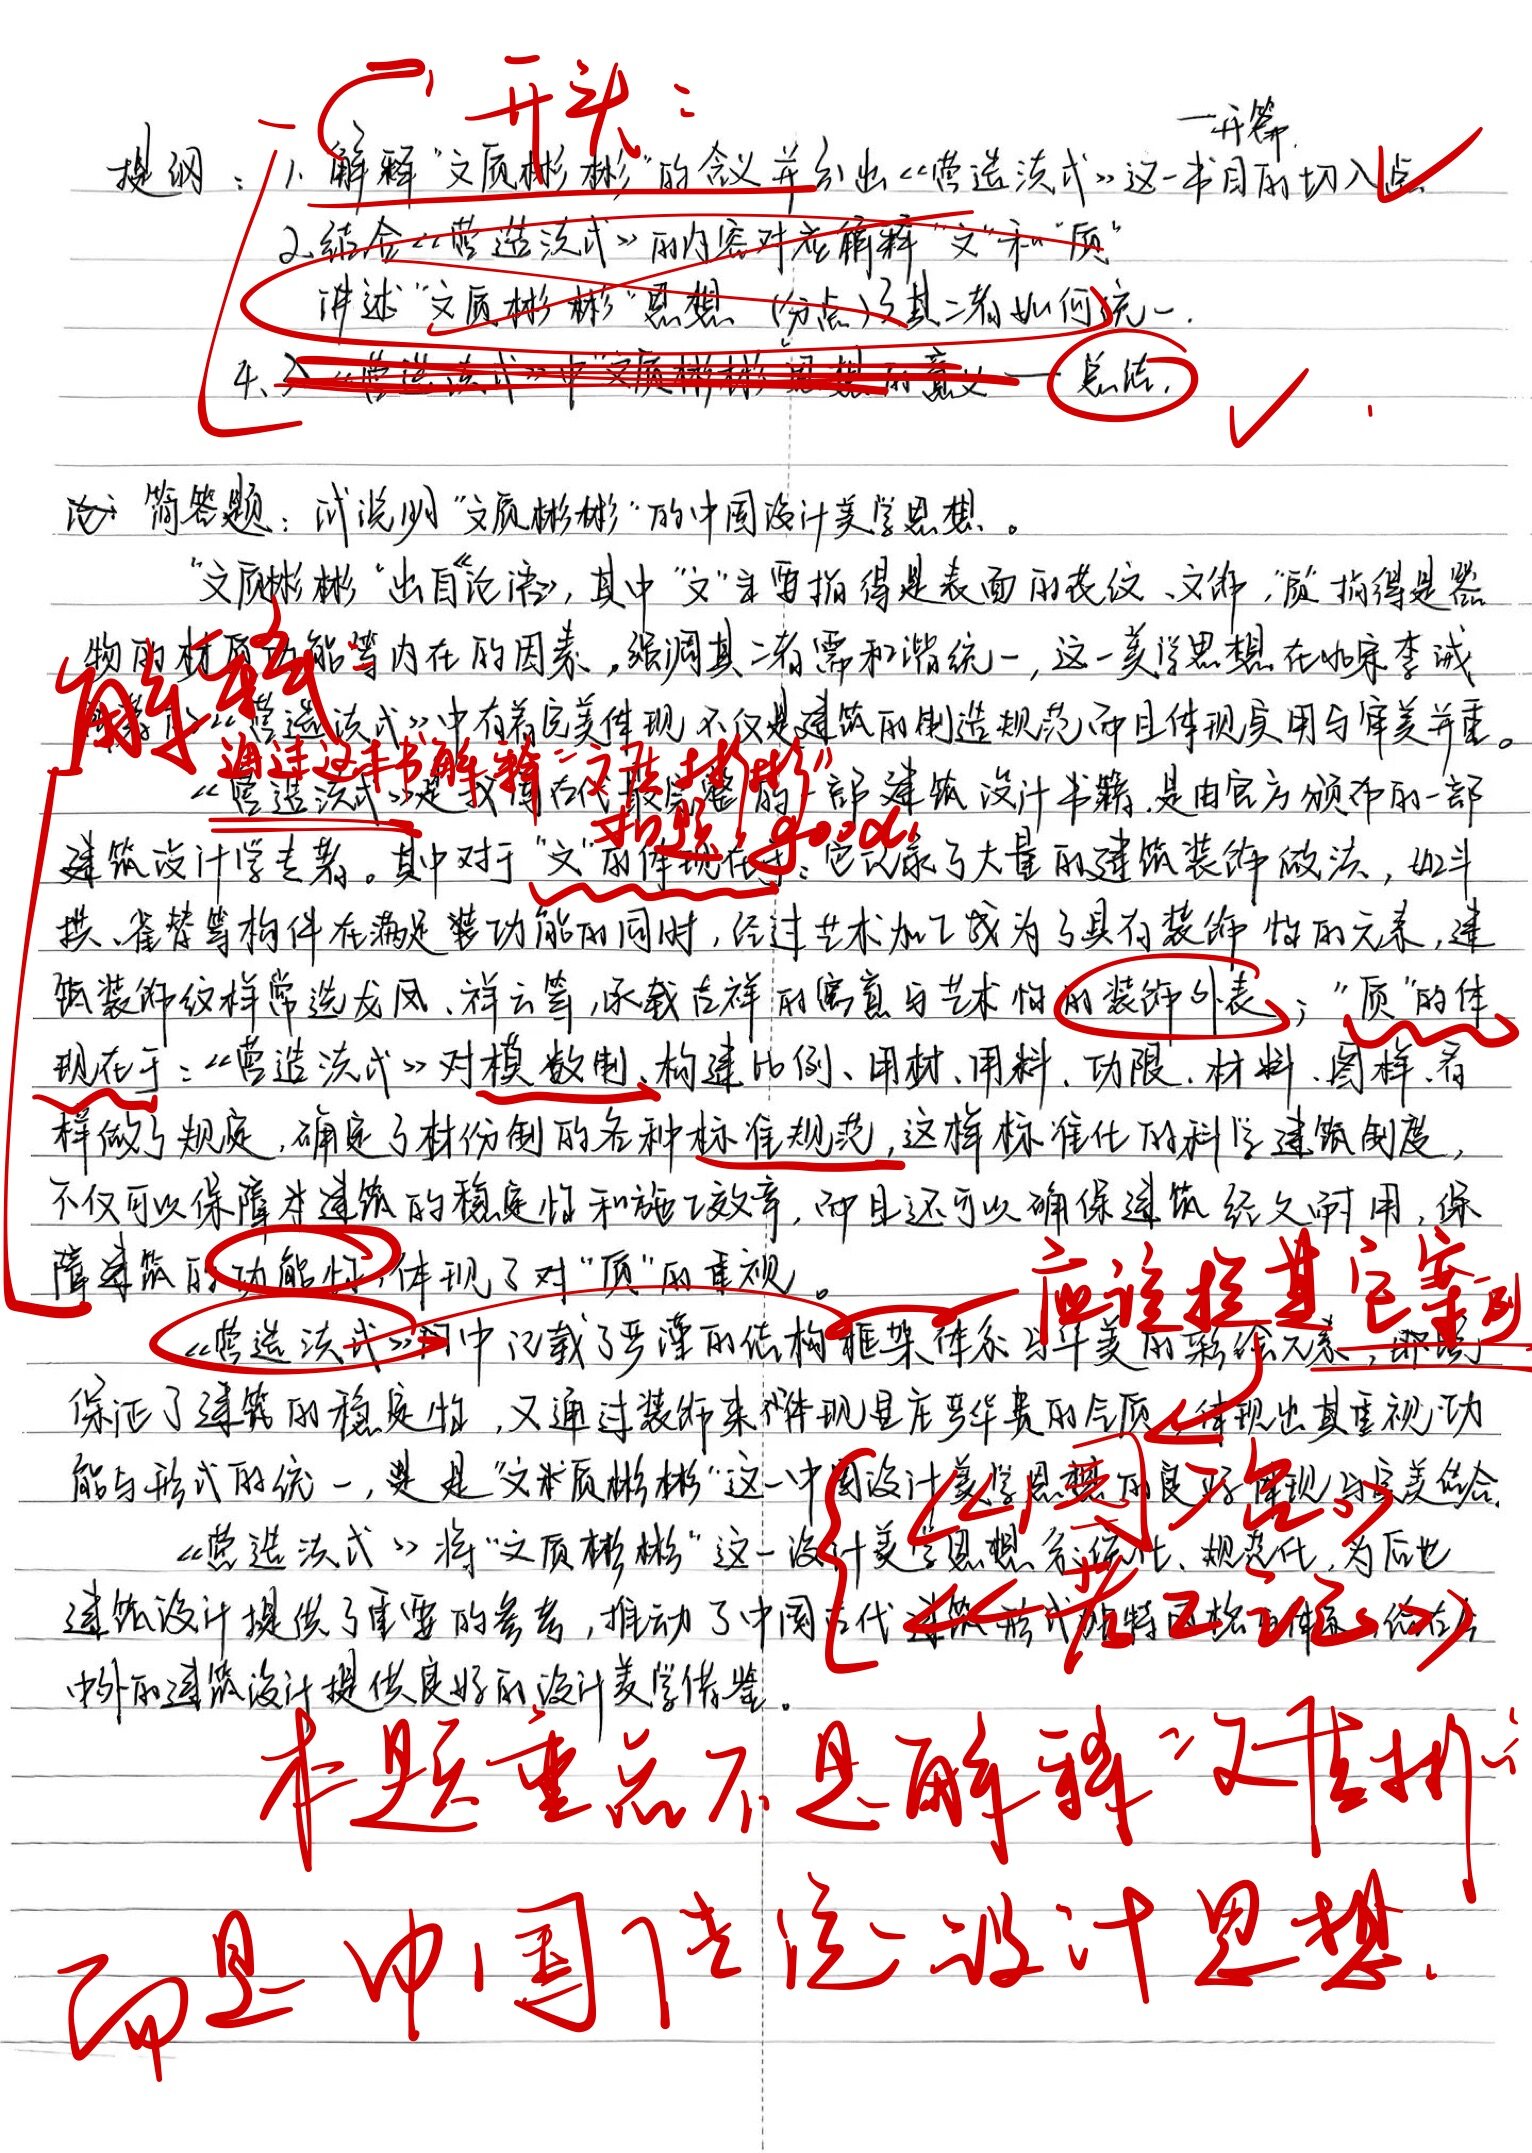 开头:
一开篇.
提纲:1、解释"文质彬彬"的含义并引出《营造法式》这一书目的切入点.
2.结合《营造法式》的内容对应解释"文"和"质"
讲述"文质彬彬"思想(分点)了其二者如何统一.
4、《营造法式》中"文质彬彬"思想的意义——总结.
简答题:试说明"文质彬彬"的中国设计美学思想。
"文质彬彬"出自《论语》,其中"文"主要指得是表面的花纹、文饰,"质"指得是器
物的材质功能等内在的因素,强调其二者需和谐统一,这一美学思想在北宋李诫
解释
《营造法式》中有着完美体现 不仅是建筑的制造规范而且体现实用与审美并重。
通过这本书解释"文质彬彬"
《营造法式》是我国古代最完整的一部建筑设计书籍.是由官方颁布的一部
扣题,good.
建筑设计学专著。其中对于"文"的体现在于:它记录了大量的建筑装饰做法,如斗
拱、雀替等构件在满足装功能的同时,经过艺术加工成为了具有装饰性的元素,建
筑装饰纹样常选龙凤、祥云等,承载吉祥的寓意与艺术性的装饰外表;"质"的体
现在于:《营造法式》对模数制、构建比例、用材、用料、功限、材料、图样、看
样做了规定,确定了材份制的各种标准规范,这样标准化的科学建筑制度,
不仅可以保障对建筑的稳定性和施工效率,而且还可以确保建筑经久耐用,保
障建筑的功能性,体现了对"质"的重视。
应该换其它案例
《营造法式》中记载了严谨的结构框架体系与华美的彩绘元素,即
保证了建筑的稳定性,又通过装饰来体现显庄严华贵的气质,体现出其重视功
能与形式的统一,是"文质彬彬"这一中国设计美学思想的良好体现与完美结合.
《闲》
《营造法式》将"文质彬彬"这一设计美学思想系统化、规范化,为后世
《考工记》
建筑设计提供了重要的参考,推动了中国古代建筑形式
中外的建筑设计提供良好的设计美学借鉴。
本题重点不是解释"文质彬
而是中国传统设计思想.